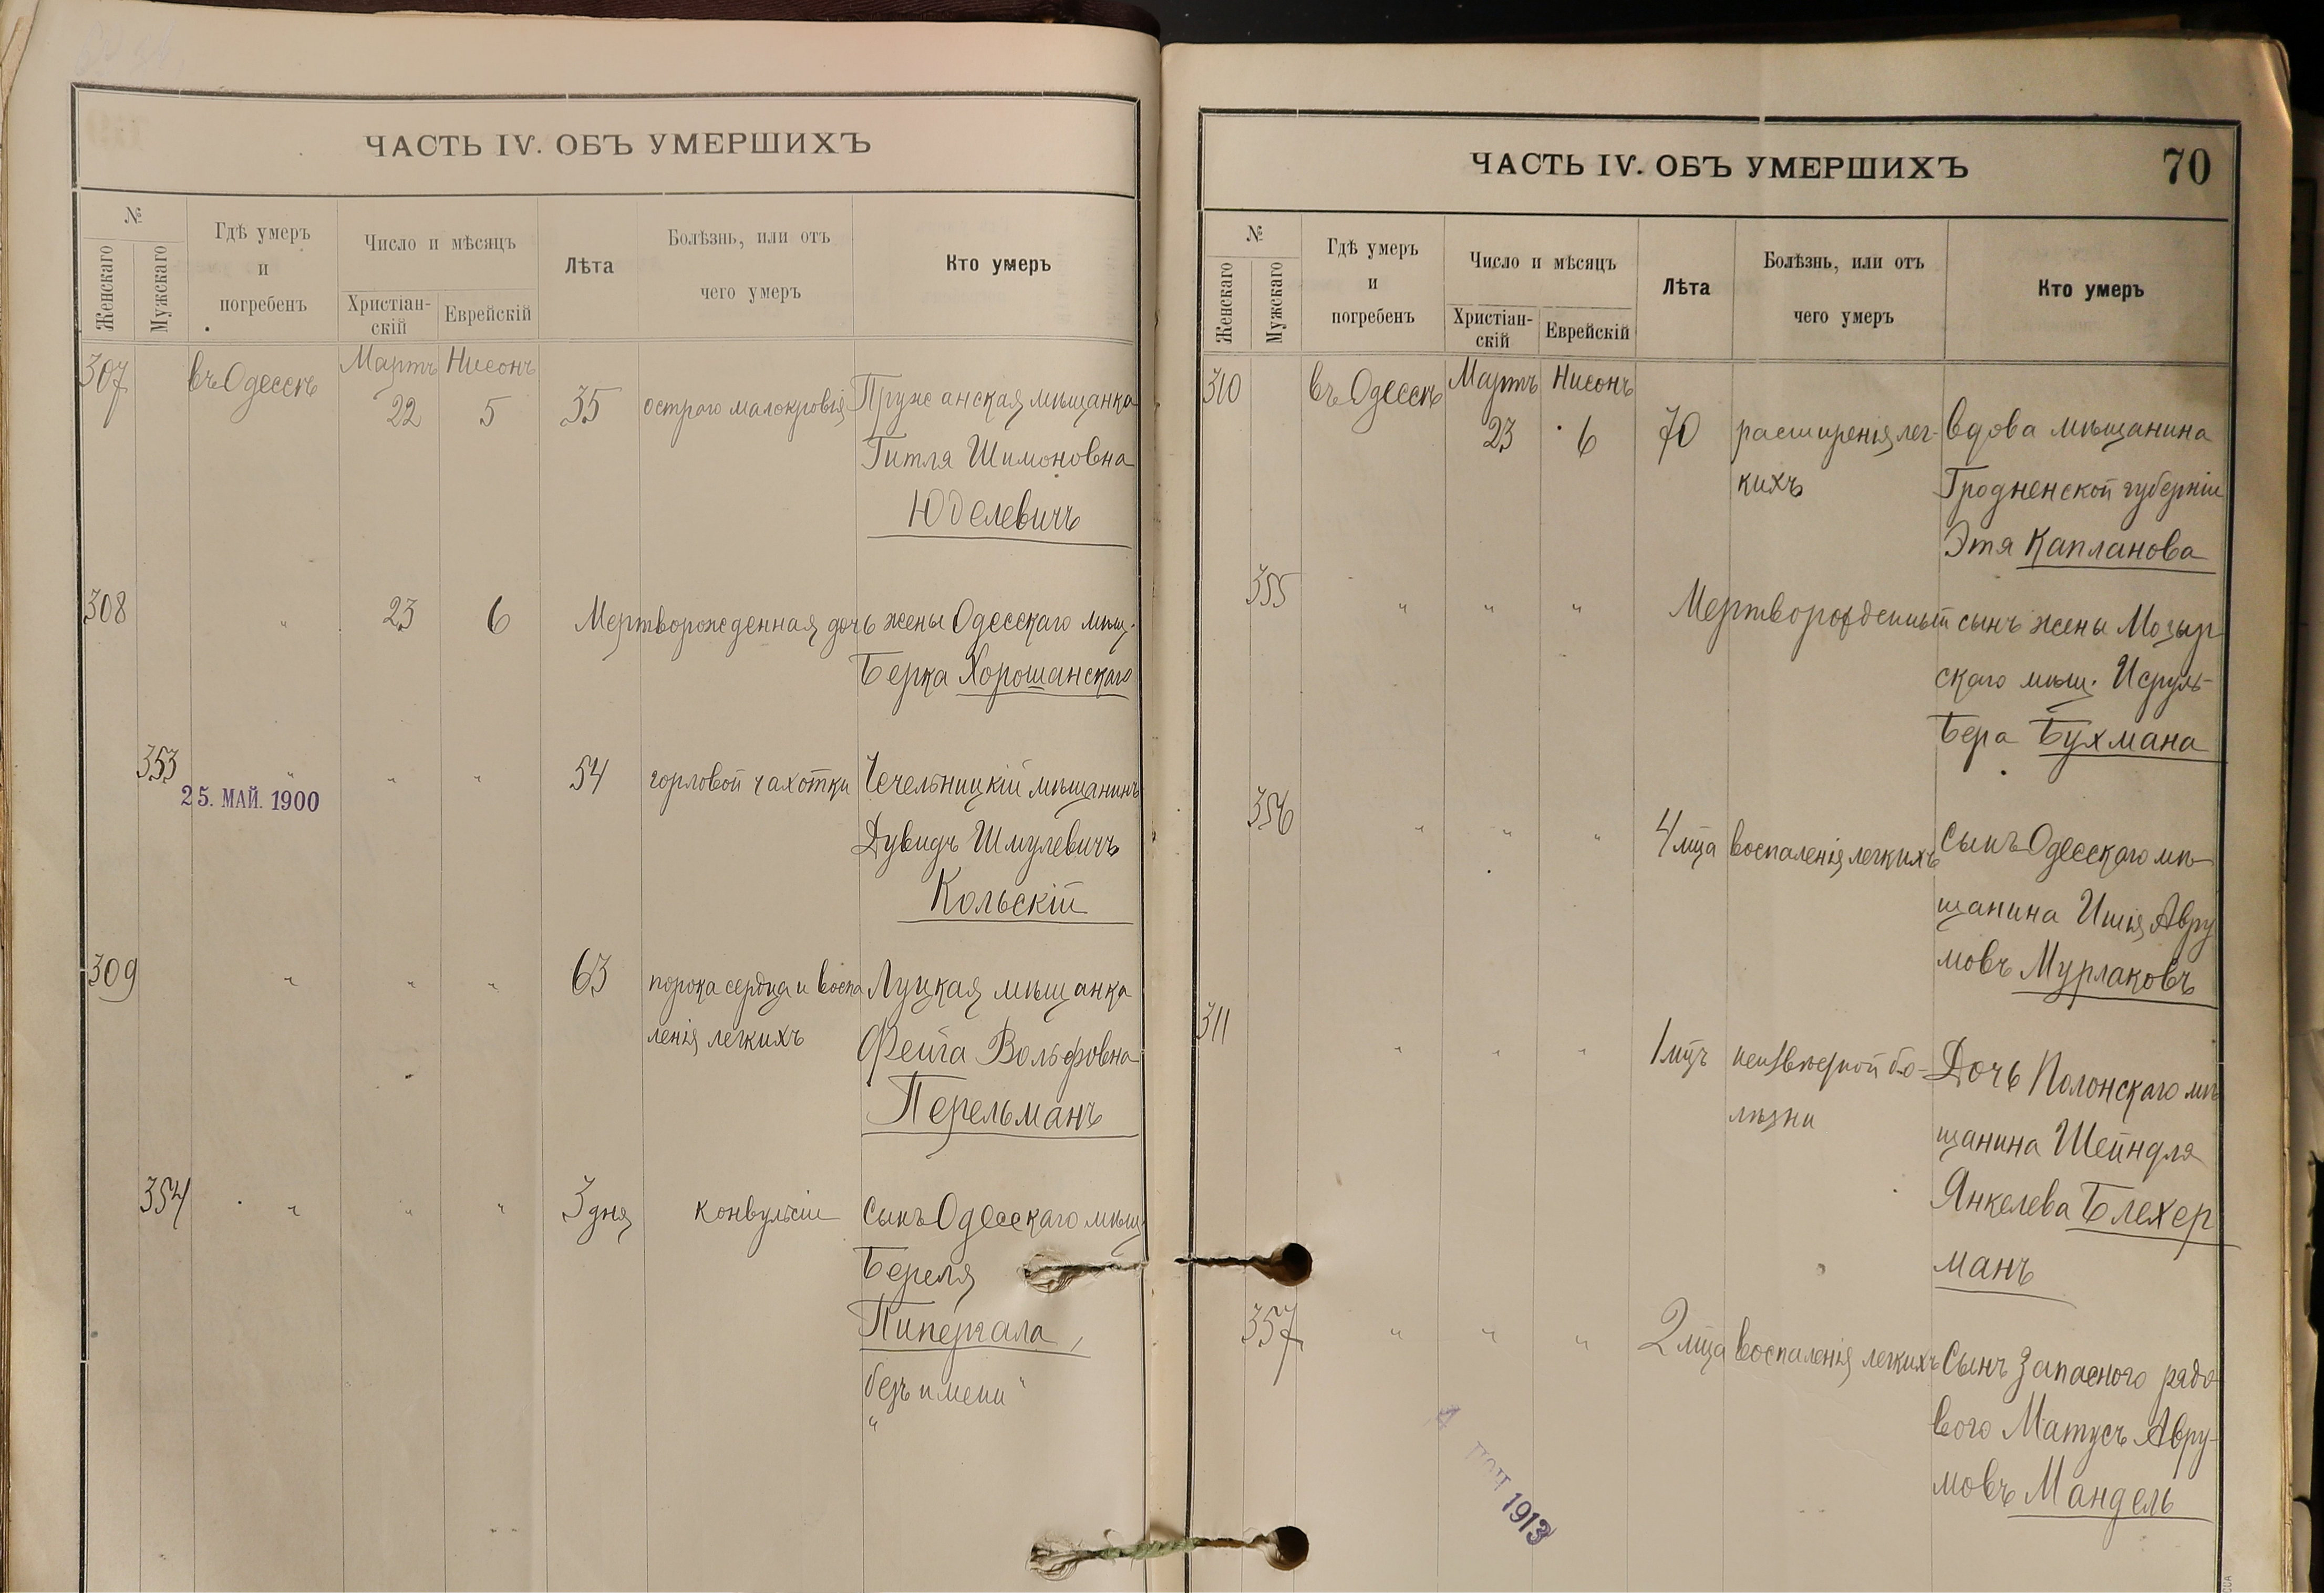 ЧАСТЬ IV. ОБЪ УМЕРШИХЪ
№
Женскаго
Мужскаго
Гдѣ умеръ
и
погребенъ
Число и мѣсяцъ
Христіан-
скій
Еврейскій
Лѣта
Болѣзнь, или отъ
чего умеръ
Кто умеръ
307 въ Одессѣ Мартъ Нисонъ
22 5 35 острого малокровія Пружанская мѣщанка
Гитля Шимоновна
Юделевичъ
308 " 23 6 Мертворожденная дочь жены Одесскаго мѣщ.
Берка Хорошанскаго
353 " " " 54 горловой чахотки Чечельницкій мѣщанинъ
25. МАЙ. 1900
Дувидъ Шмулевичъ
Кольскій
309 " " " 63 порока сердца и воспа Луцкая мѣщанка
ленія легкихъ Фейга Вольфовна
Перельманъ
354 " " " 3 дня конвульсіи Сынъ Одесскаго мѣщ.
Береля
Пипергала,
"безъ имени"
ЧАСТЬ IV. ОБЪ УМЕРШИХЪ 70
№
Женскаго
Мужскаго
Гдѣ умеръ
и
погребенъ
Число и мѣсяцъ
Христіан-
скій
Еврейскій
Лѣта
Болѣзнь, или отъ
чего умеръ
Кто умеръ
310 въ Одессѣ Мартъ Нисонъ
23 6 70 расширенія лег- вдова мѣщанина
кихъ Гродненской губерніи
Этя Капланова
355 " " " Мертворожденный сынъ жены Мозыр
скаго мѣщ. Исруль-
Бера Бухмана
356 " " " 4 мца воспаленія легкихъ Сынъ Одесскаго мѣ-
щанина Ишія Авру
мовъ Мурлаковъ
311 " " " 1 мцъ неизвѣстной бо- Дочь Полонскаго мѣ
лѣзни щанина Шейндля
Янкелева Блехер
манъ
357 " " " 2 мца воспаленія легкихъ Сынъ запасного рядо
вого Матусъ Авру-
мовъ Мандель
1913